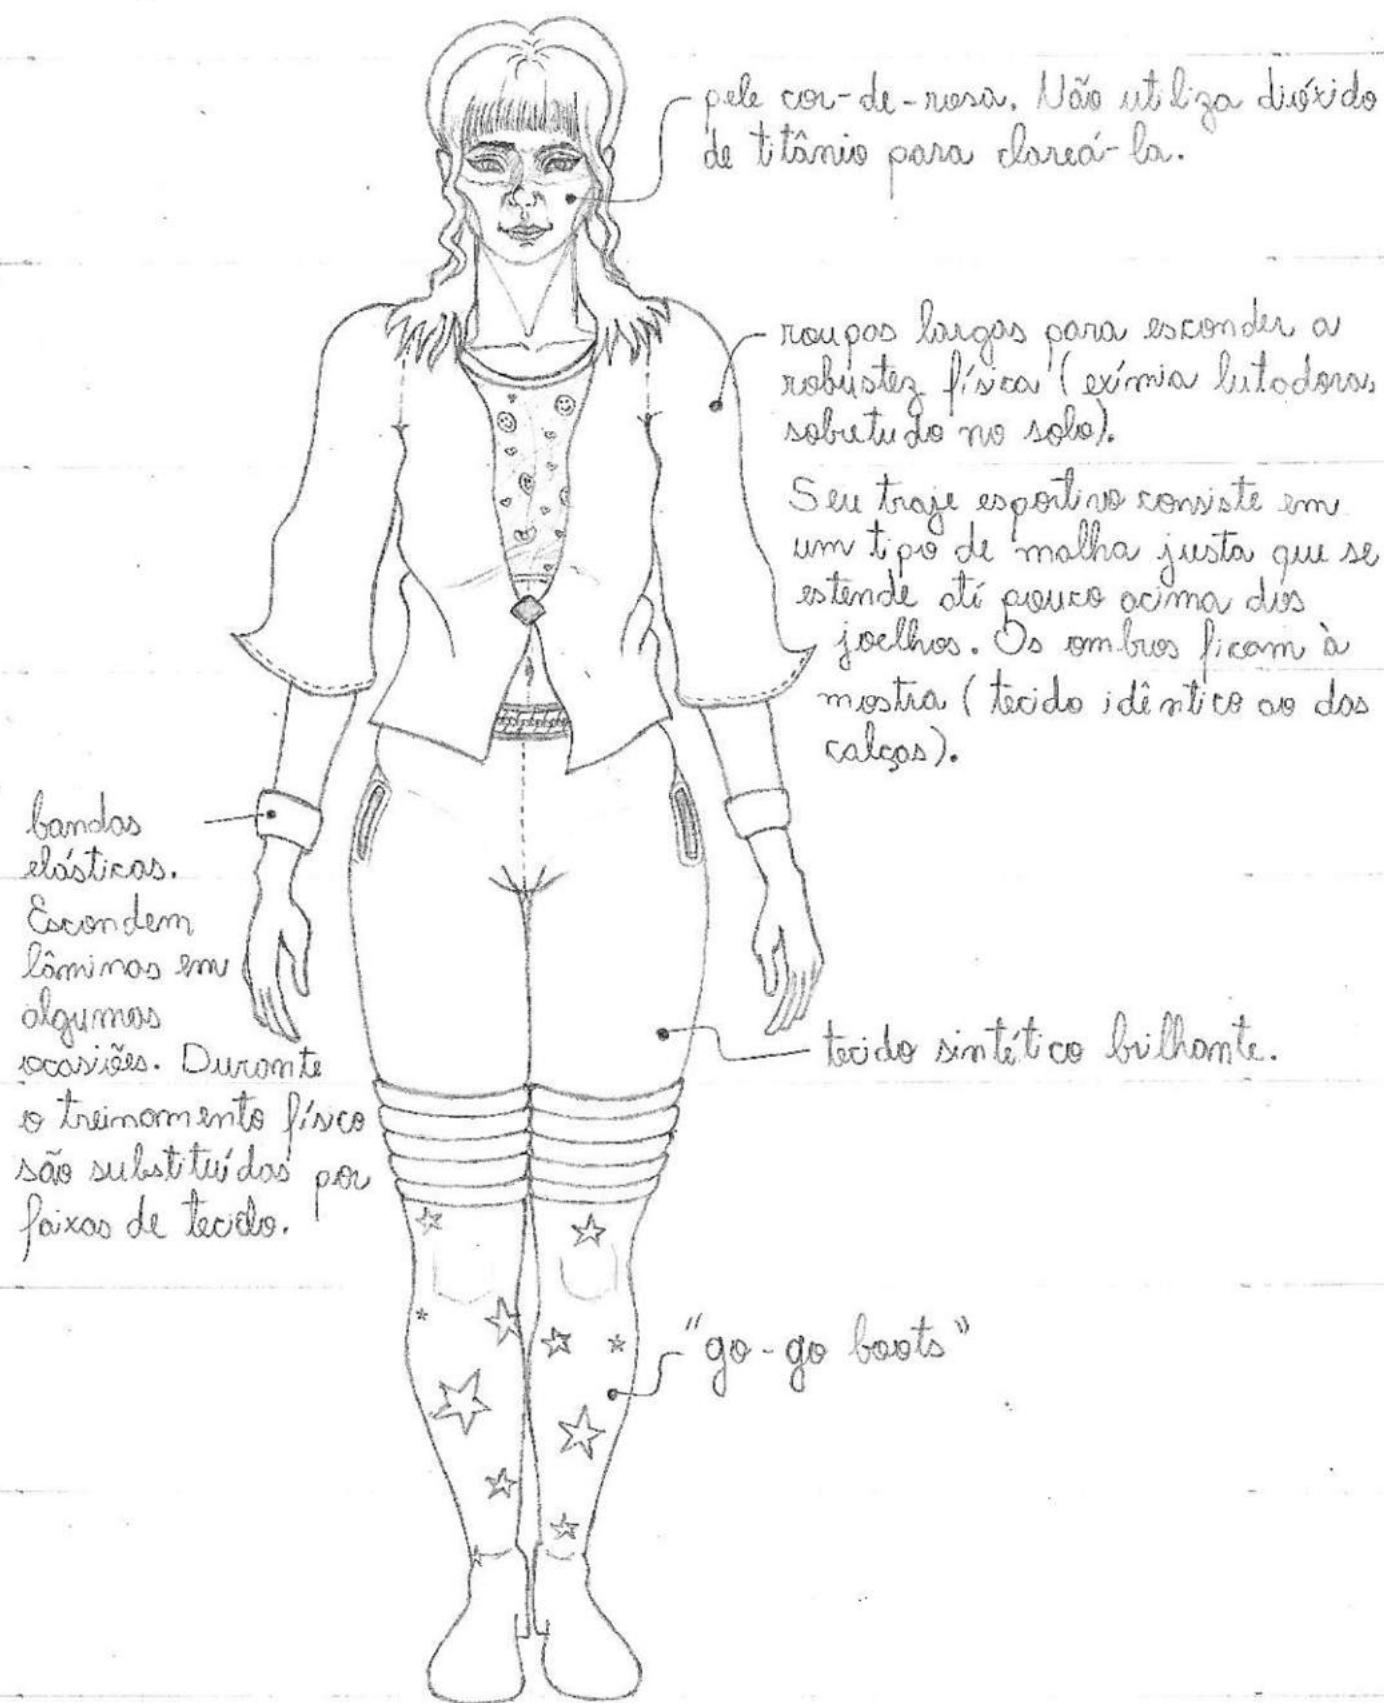 pele cor-de-rosa. Não utiliza dióxido
de titânio para clareá-la.
roupas largas para esconder a
robustez física (exímia lutadora,
sobretudo no solo).
Seu traje esportivo consiste em
um tipo de malha justa que se
estende até pouco acima dos
joelhos. Os ombros ficam à
mostra (tecido idêntico ao das
calças).
bandas
elásticas.
Escondem
lâminas em
algumas
ocasiões. Durante
o treinamento físico
são substituídas por
faixas de tecido.
tecido sintético brilhante.
"go-go boots"